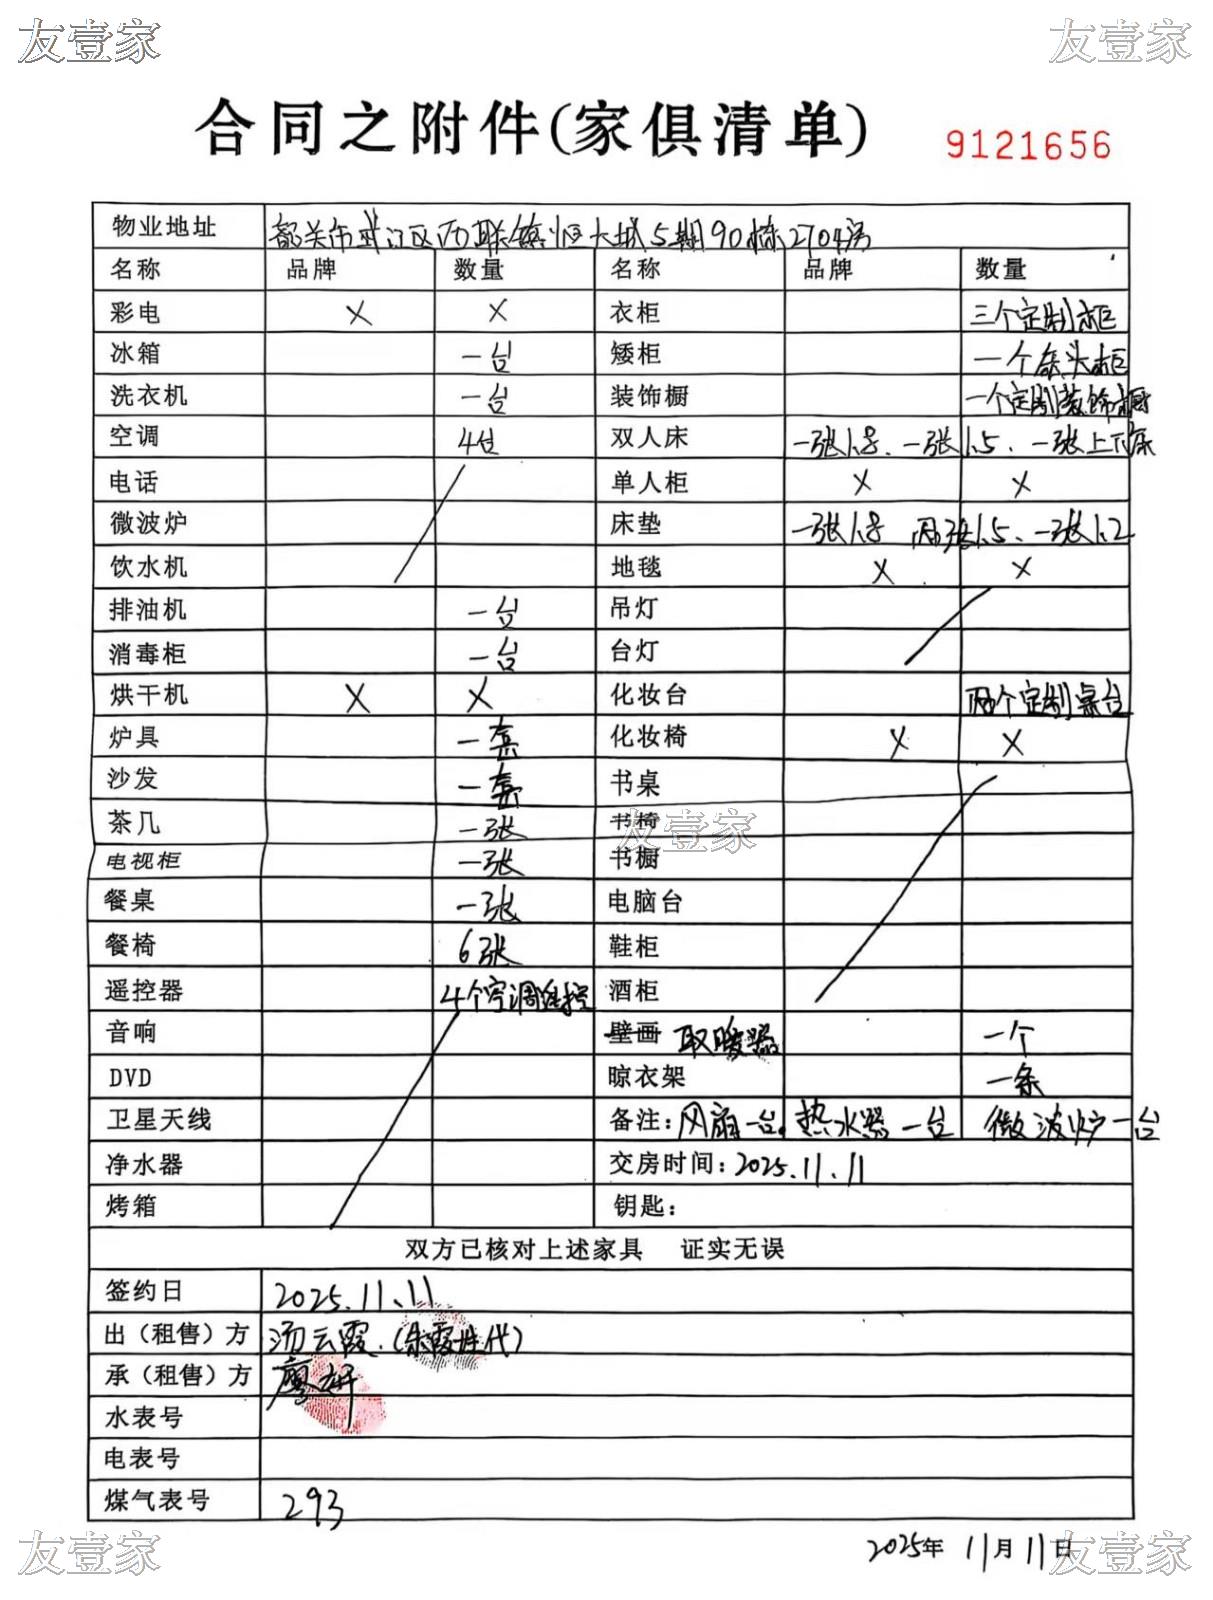 友壹家 友壹家
合同之附件(家俱清单) 9121656
物业地址 韶关市武江区西联镇恒大城5期90栋2704房
名称 品牌 数量 名称 品牌 数量
彩电 X X 衣柜 三个定制柜
冰箱 一台 矮柜 一个床头柜
洗衣机 一台 装饰橱 一个定制装饰橱
空调 4台 双人床 一张1.8、一张1.5、一张上下床
电话 单人柜 X X
微波炉 床垫 一张1.8 两张1.5、一张1.2
饮水机 地毯 X X
排油机 一台 吊灯
消毒柜 一台 台灯
烘干机 X X 化妆台 两个定制桌台
炉具 一套 化妆椅 X X
沙发 一套 书桌
茶几 一张 书椅
友壹家
电视柜 一张 书橱
餐桌 一张 电脑台
餐椅 6张 鞋柜
遥控器 4个空调遥控 酒柜
音响 壁画 取暖器 一个
DVD 晾衣架 一条
卫星天线 备注:风扇一台 热水器一台 微波炉一台
净水器 交房时间:2025.11.11
烤箱 钥匙:
双方已核对上述家具 证实无误
签约日 2025.11.11
出(租售)方 汤云霞.(朱霞代)
承(租售)方 廖妍
水表号
电表号
煤气表号 293
2025年 11月11日
友壹家 友壹家